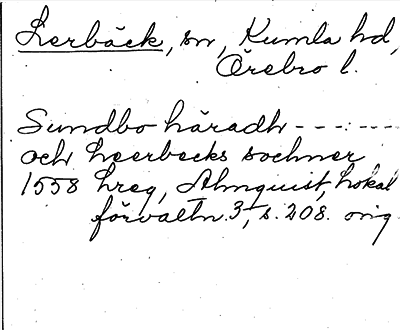 Lerbäck, sn, Kumla hd,
Örebro l.
Sundbo häradh - - - : - - -
och Leerbecks sochner
1558 hreg, Almquist, Lokal
förvaltn. 3, s. 208. orig